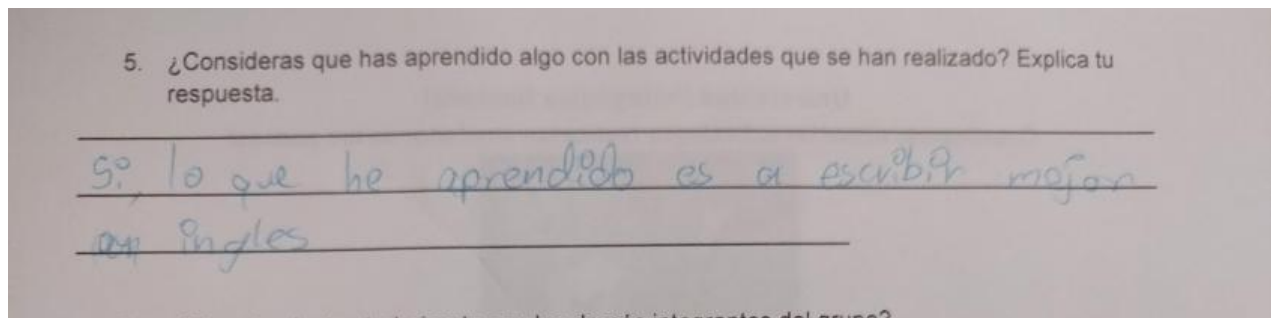 5. ¿Consideras que has aprendido algo con las actividades que se han realizado? Explica tu
respuesta.
Si, lo que he aprendido es a escribir mejor
en ingles
integrantes del grupo?